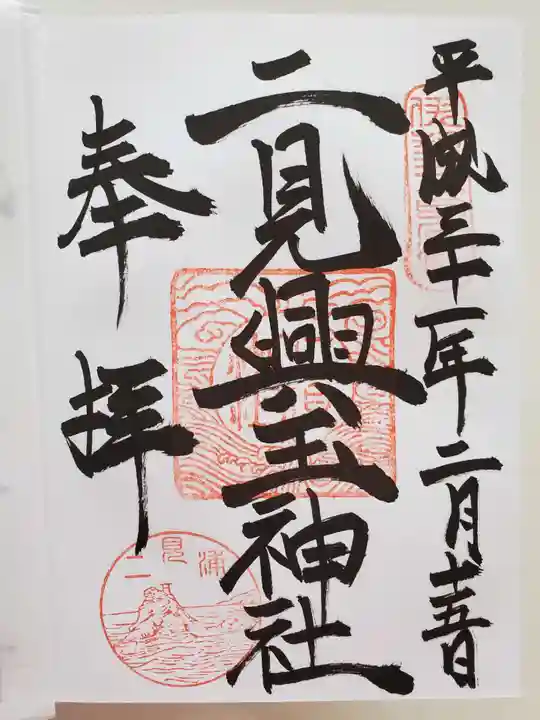 平成三十一年二月十五日
二見興玉神社
奉拝
二見浦